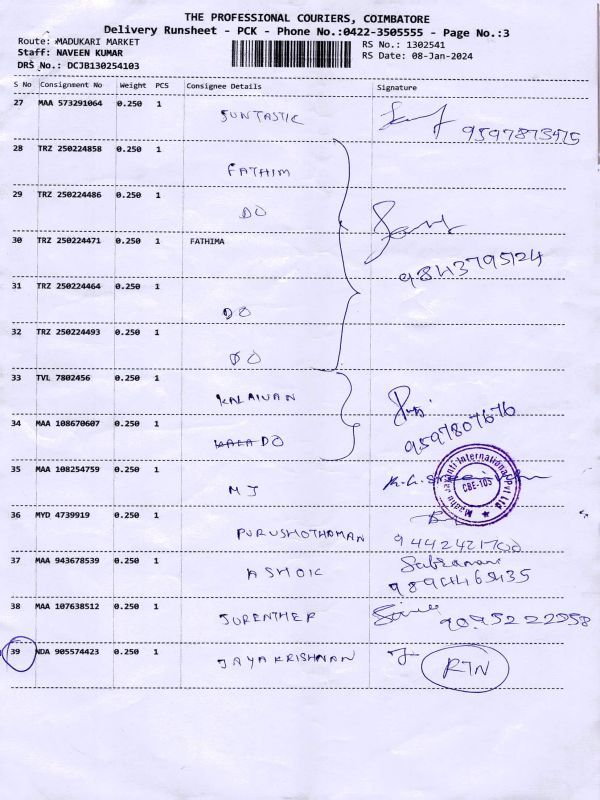 THE PROFESSIONAL COURIERS, COIMBATORE
Delivery Runsheet - PCK - Phone No.:0422-3505555 - Page No.:3
Route: MADUKARI MARKET
RS No.: 1302541
Staff: NAVEEN KUMAR
RS Date: 08-Jan-2024
DRS No.: DCJB130254103
S No Consignment No Weight PCS Consignee Details Signature
27 MAA 573291064 0.250 1
SUNTASTIC
28 TRZ 250224858 0.250 1
FATHIM
29 TRZ 250224486 0.250 1
DO
30 TRZ 250224471 0.250 1 FATHIMA
9843795124
31 TRZ 250224464 0.250 1
DO
32 TRZ 250224493 0.250 1
DO
33 TVL 7802456 0.250 1
KALAIVAN
34 MAA 108670607 0.250 1
9597807676
DO
35 MAA 108254759 0.250 1
MJ
Madhu Jayanti International Pvt Ltd
CBE-105
36 MYD 4739919 0.250 1
PURUSHOTHAMAN
37 MAA 943678539 0.250 1
ASHOK
38 MAA 107638512 0.250 1
SURENTHER 9095222558
39 NDA 905574423 0.250 1
JAYAKRISHNAN RTN